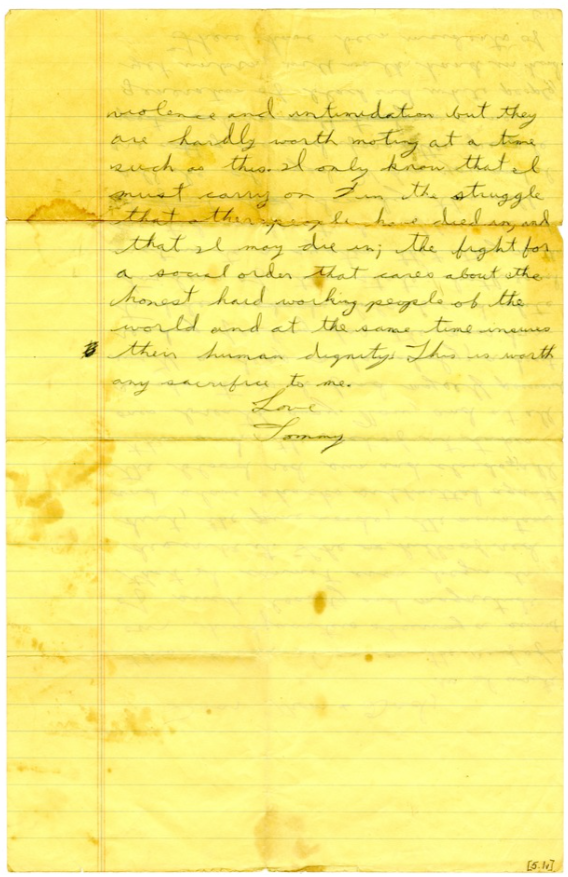 violence and intimidation but they
are hardly worth noting at a time
such as this. I only know that I
must carry on in the struggle
that other people have died in, and
that I may die in; the fight for
a social order that cares about the
honest hard working people of the
world and at the same time insures
their human dignity. This is worth
any sacrifice to me.
Love
Tommy